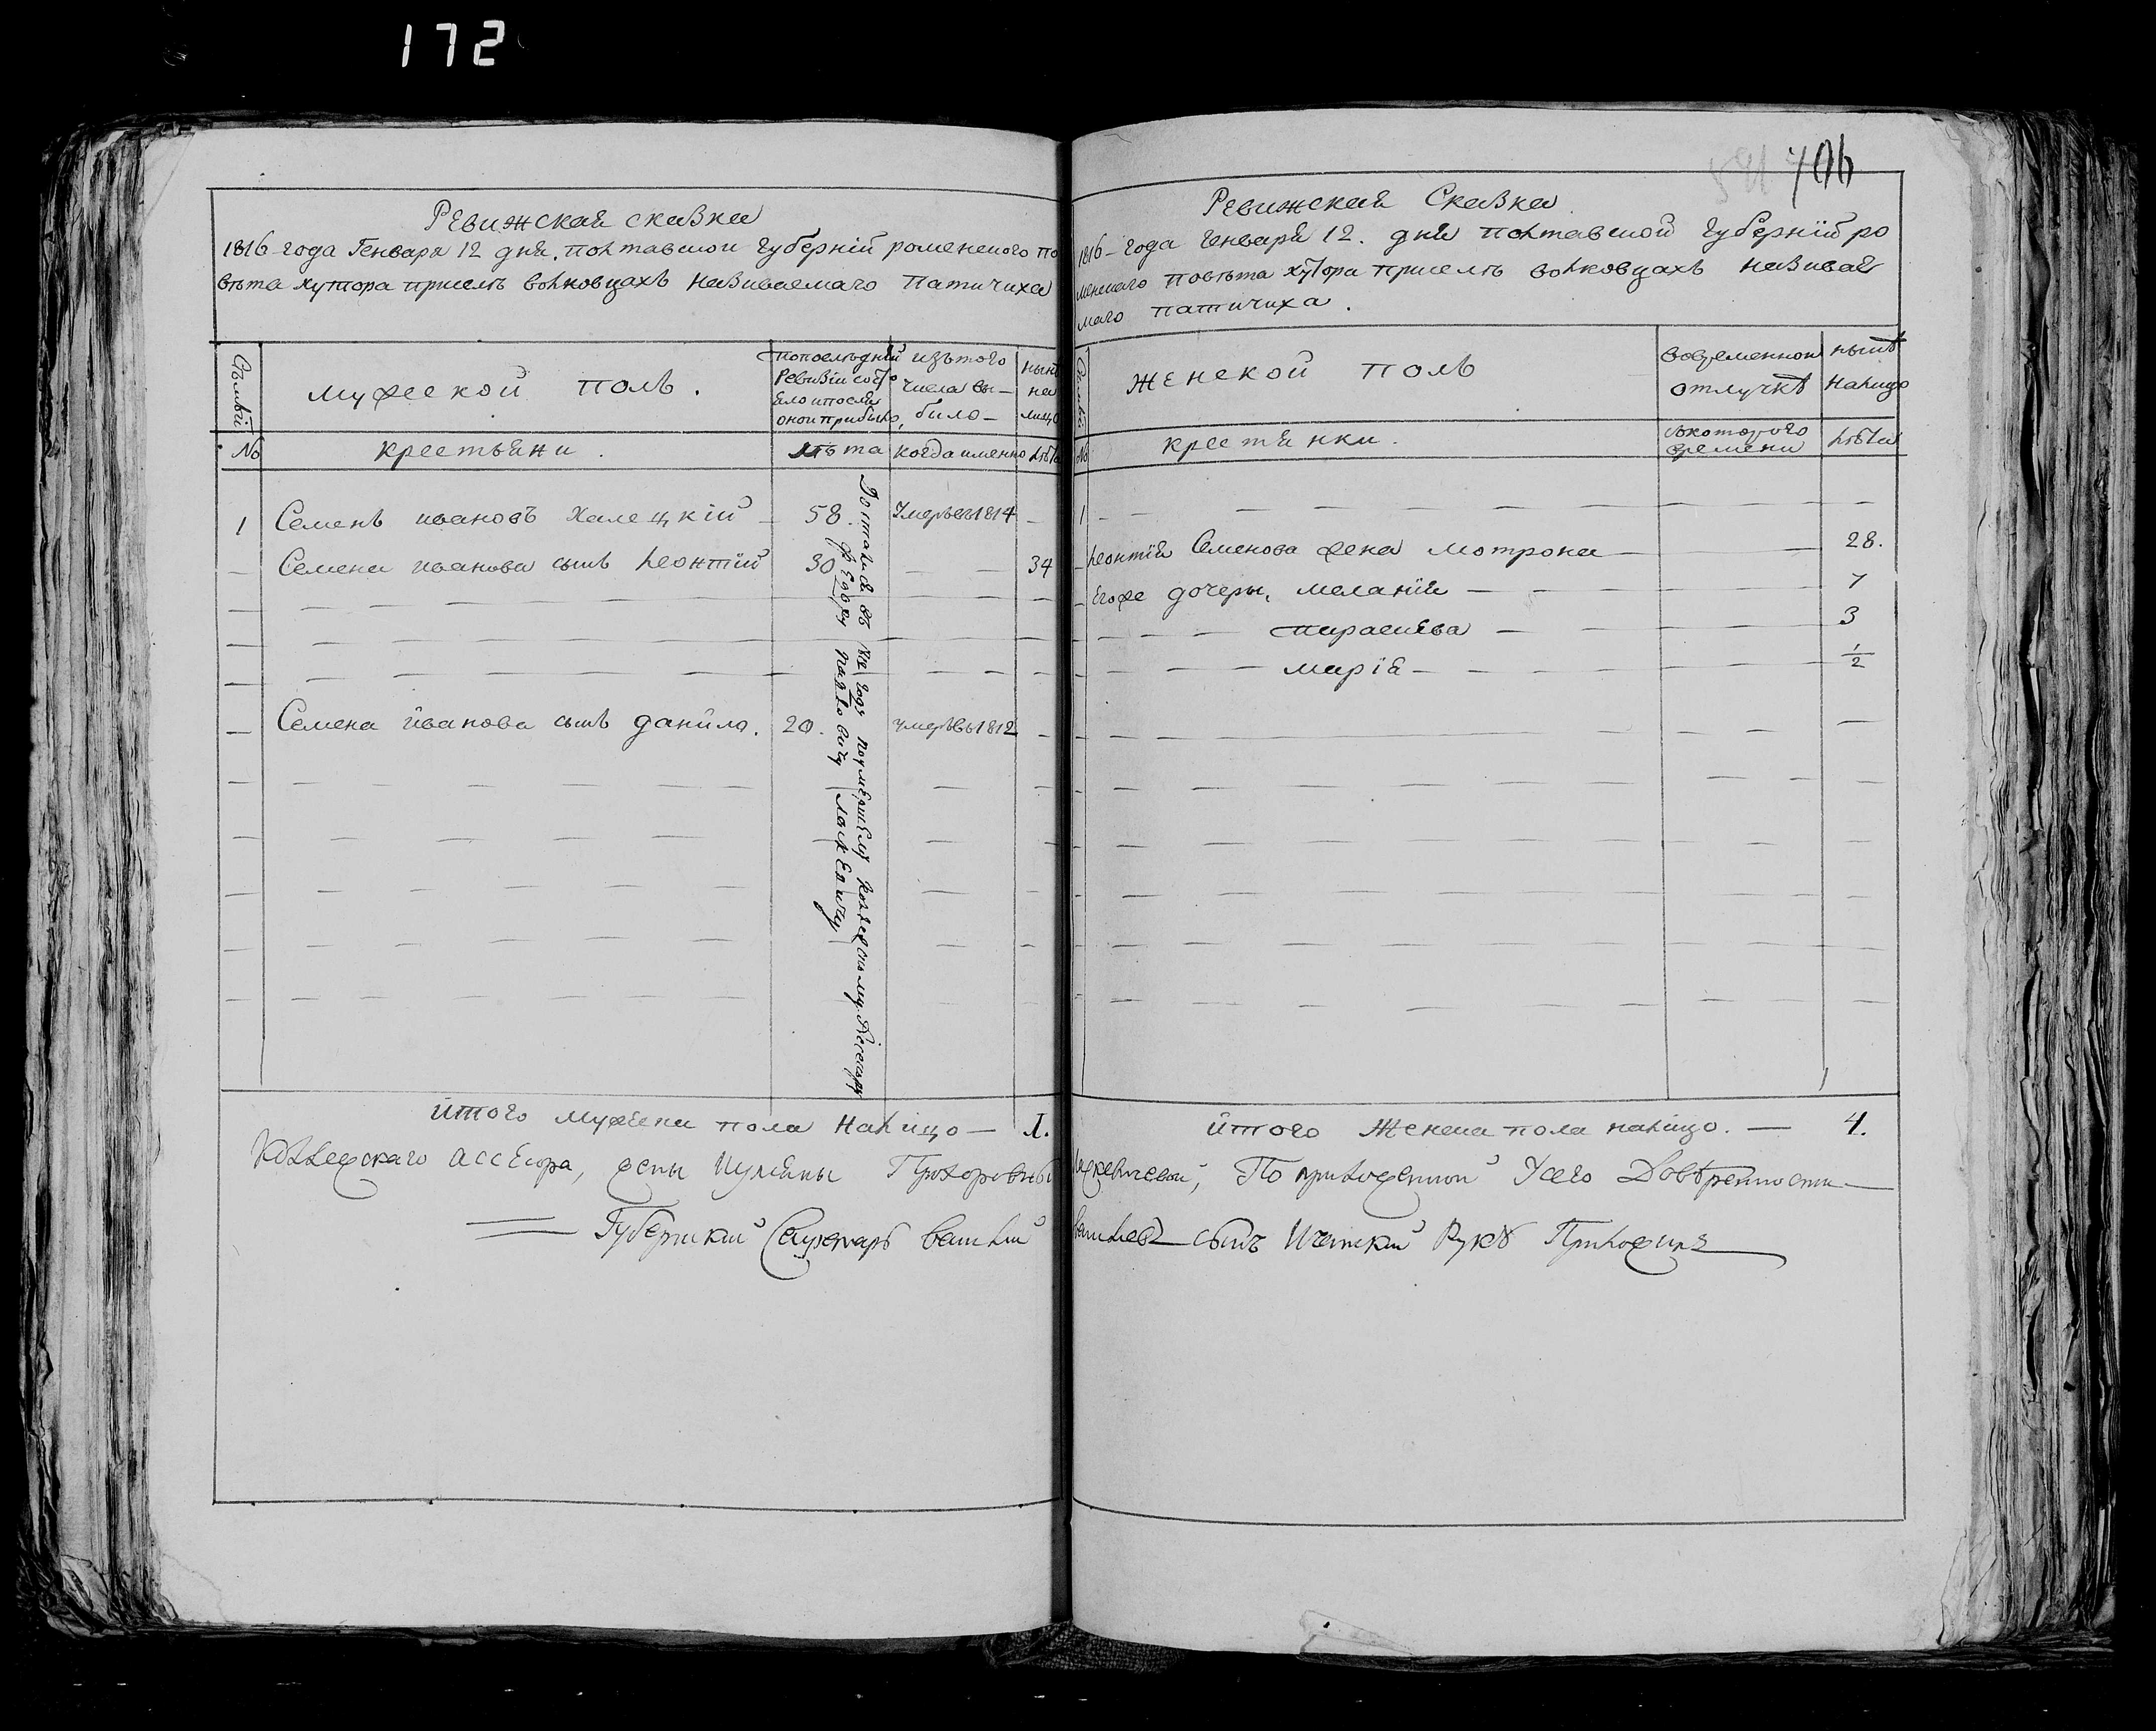 172
Ревижская сказка
1816 года Генваря 12 дня. полтавской губерній роменского по
вѣта хутора приселѣ волковцахъ називаемаго Патичиха
Семьи
мужеской полъ.
попоследнѣй
Ревизіи состо
яло ипосля
оной прибыло,
изътого
числа вы-
било-
нынѣ
на
лицо
№
крестьяни.
лѣта
когда именно
лѣта
1 Семенъ ивановъ Халецкій 58. Умеръвъ1814 -
Семена иванова сынъ леонтій 30 34
Семена иванова сынъ данило. 20. умеръвъ1812
Достался въ 1812 году поумершему Коллежскому
Федору Павловичу
итого мужеска пола налицо - 1.
406
Ревижская Сказка
1816 - года генваря 12. дня полтавской губерніи ро
менскаго повѣта хутора приселѣ волковцахъ називае
маго патичиха.
Семьи
женской полъ
вовременной
отлучкѣ
нынѣ
налицо
№
крестянки.
скоторого
времени
лѣта
1
леонтія Семенова жена мотрона 28.
Егоже дочери, меланія 7
параскева 3
марія 1/2
итого Женска пола налицо. - 4.
Коллежскаго Ассесора, жены Иулияны Прохоровны
По приложенной Усего Довѣренности
Губернский Секретарь Василий Васильевъ сынъ Руку Приложилъ